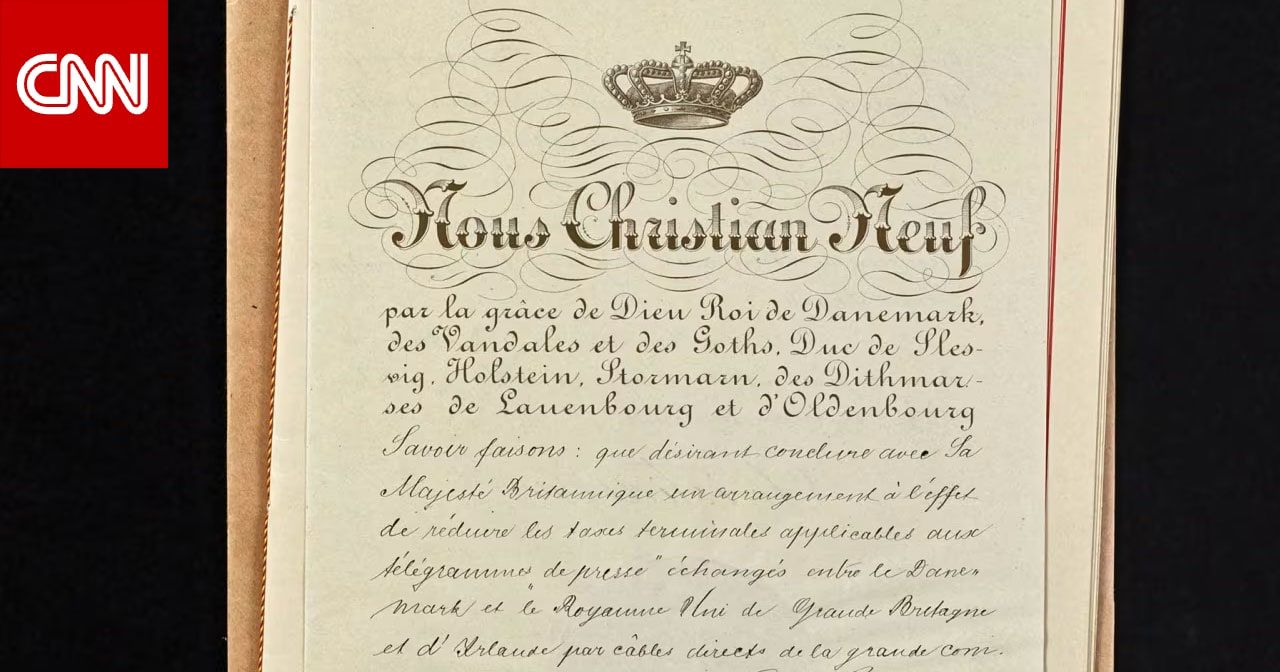 CNN
Nous Christian Neuf
par la grâce de Dieu Roi de Danemark,
des Vandales et des Goths, Duc de Sles-
vig, Holstein, Stormarn, des Dithmar-
ses de Lauenbourg et d'Oldenbourg
Savoir faisons: que désirant conclure avec Sa
Majesté Britannique un arrangement à l'effet
de réduire les taxes terminales applicables aux
télégrammes de presse" échangés entre le Dane„
mark et le Royaume Uni de Grande Bretagne
et d'Irlande par câbles directs de la grande com.